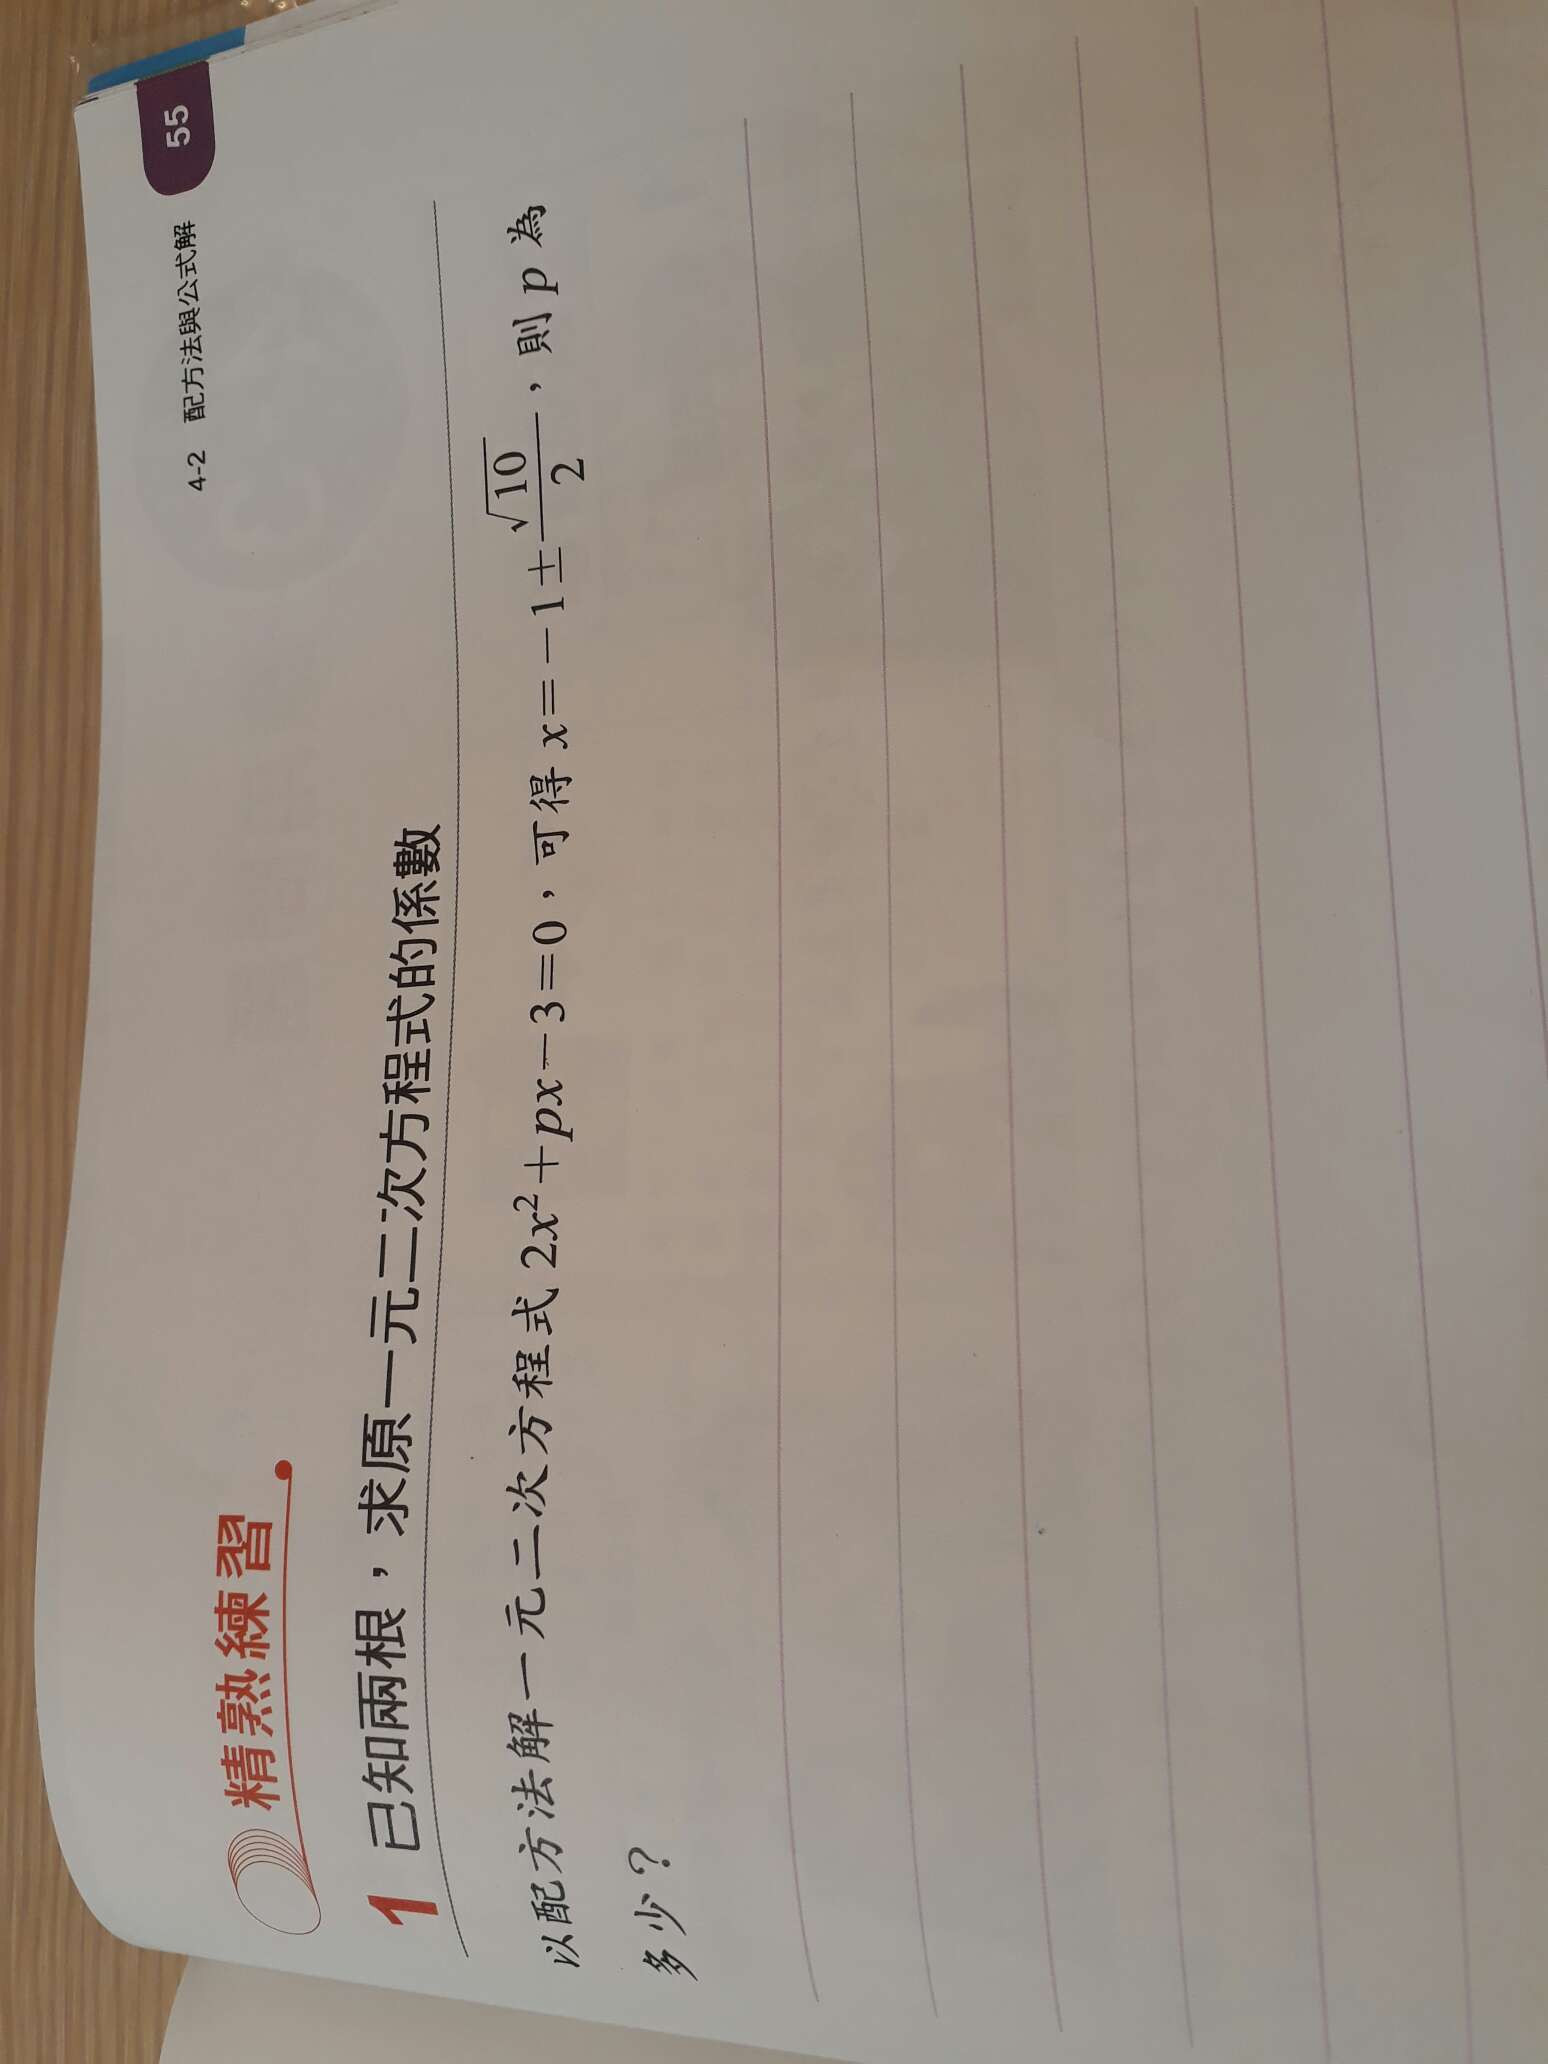 4-2 配方法與公式解 55
精熟練習
1 已知兩根，求原一元二次方程式的係數
以配方法解一元二次方程式 2x²+px−3=0，可得 x=−1±√10/2，則 p 為
多少？